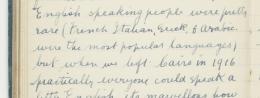 English speaking people were pretty
rare (French, Italian, Greek, & Arabic
were the most popular languages)
but when we left Cairo in 1916
practically everyone could speak a
little English its marvellous how